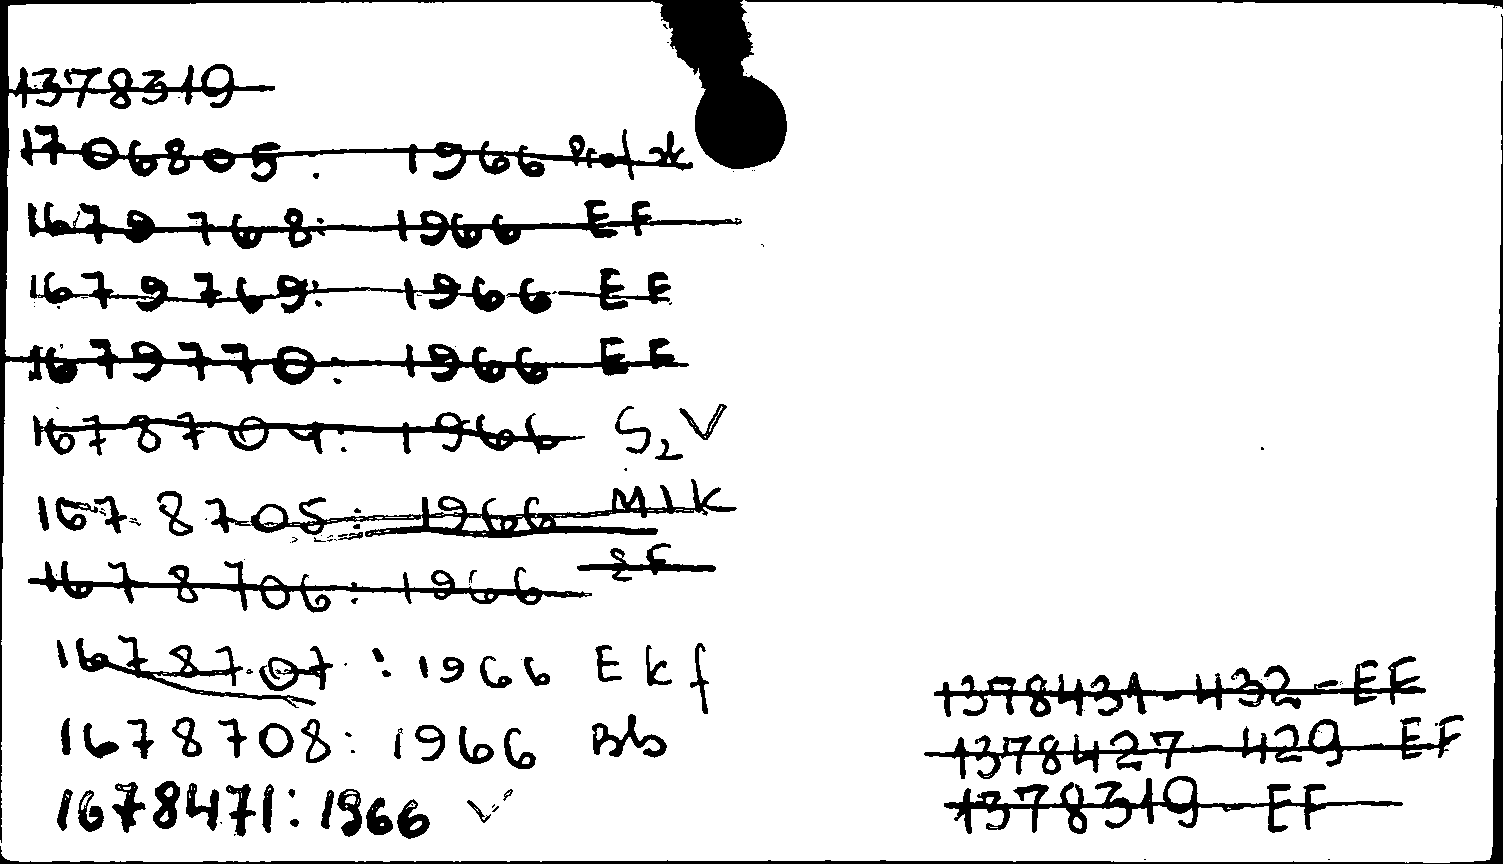 1378319
1706805: 1966
1679768: 1966 EF
1679769: 1966 EF
1679770: 1966 EF
1678704: 1966 S2V
1678705: 1966 MIK
1678706: 1966 EF
1678707: 1966 Ekf
1678708: 1966 Bb
1678471: 1966 ✓
1378431-432-EF
1378427-429 EF
1378319-EF